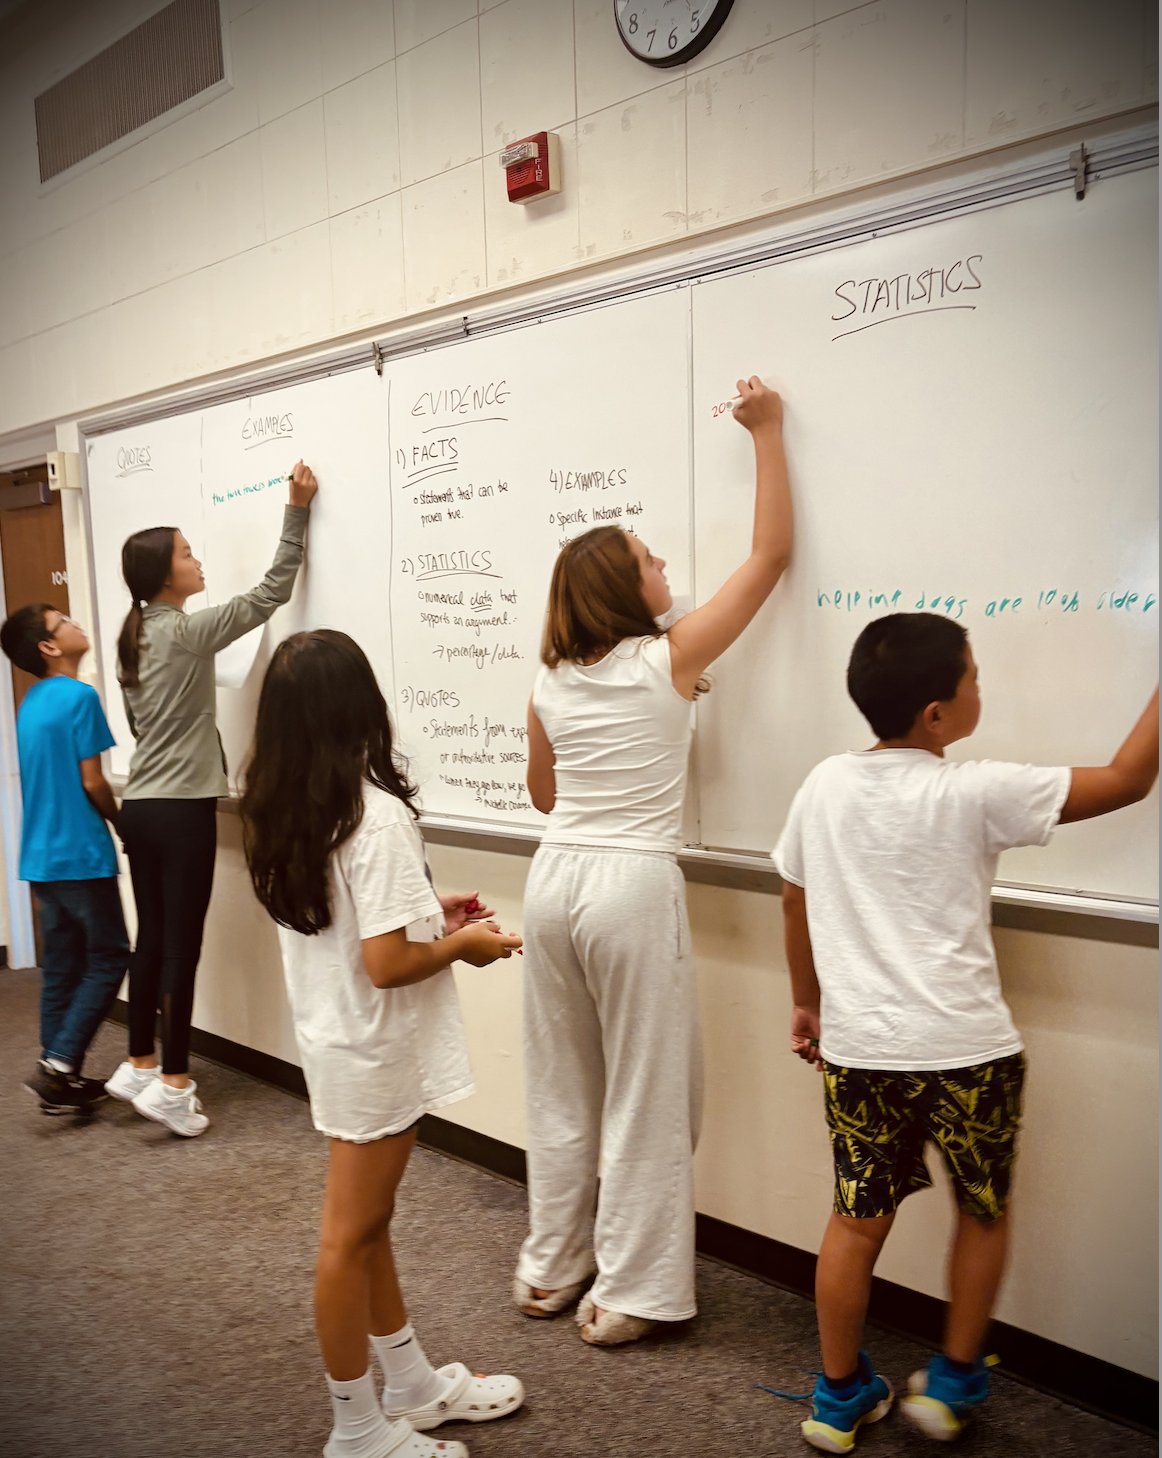 8 7 6 5
FIRE
104
QUOTES
EXAMPLES
the twin towers were
EVIDENCE
1) FACTS
statements that can be
proven true.
2) STATISTICS
numerical data that
supports an argument.
→ percentage/data.
3) QUOTES
Statements from exp
or authoritative sources.
"When they go low, we go
→ Michelle Obama
4) EXAMPLES
Specific Instance that
STATISTICS
20
helping dogs are 100% older